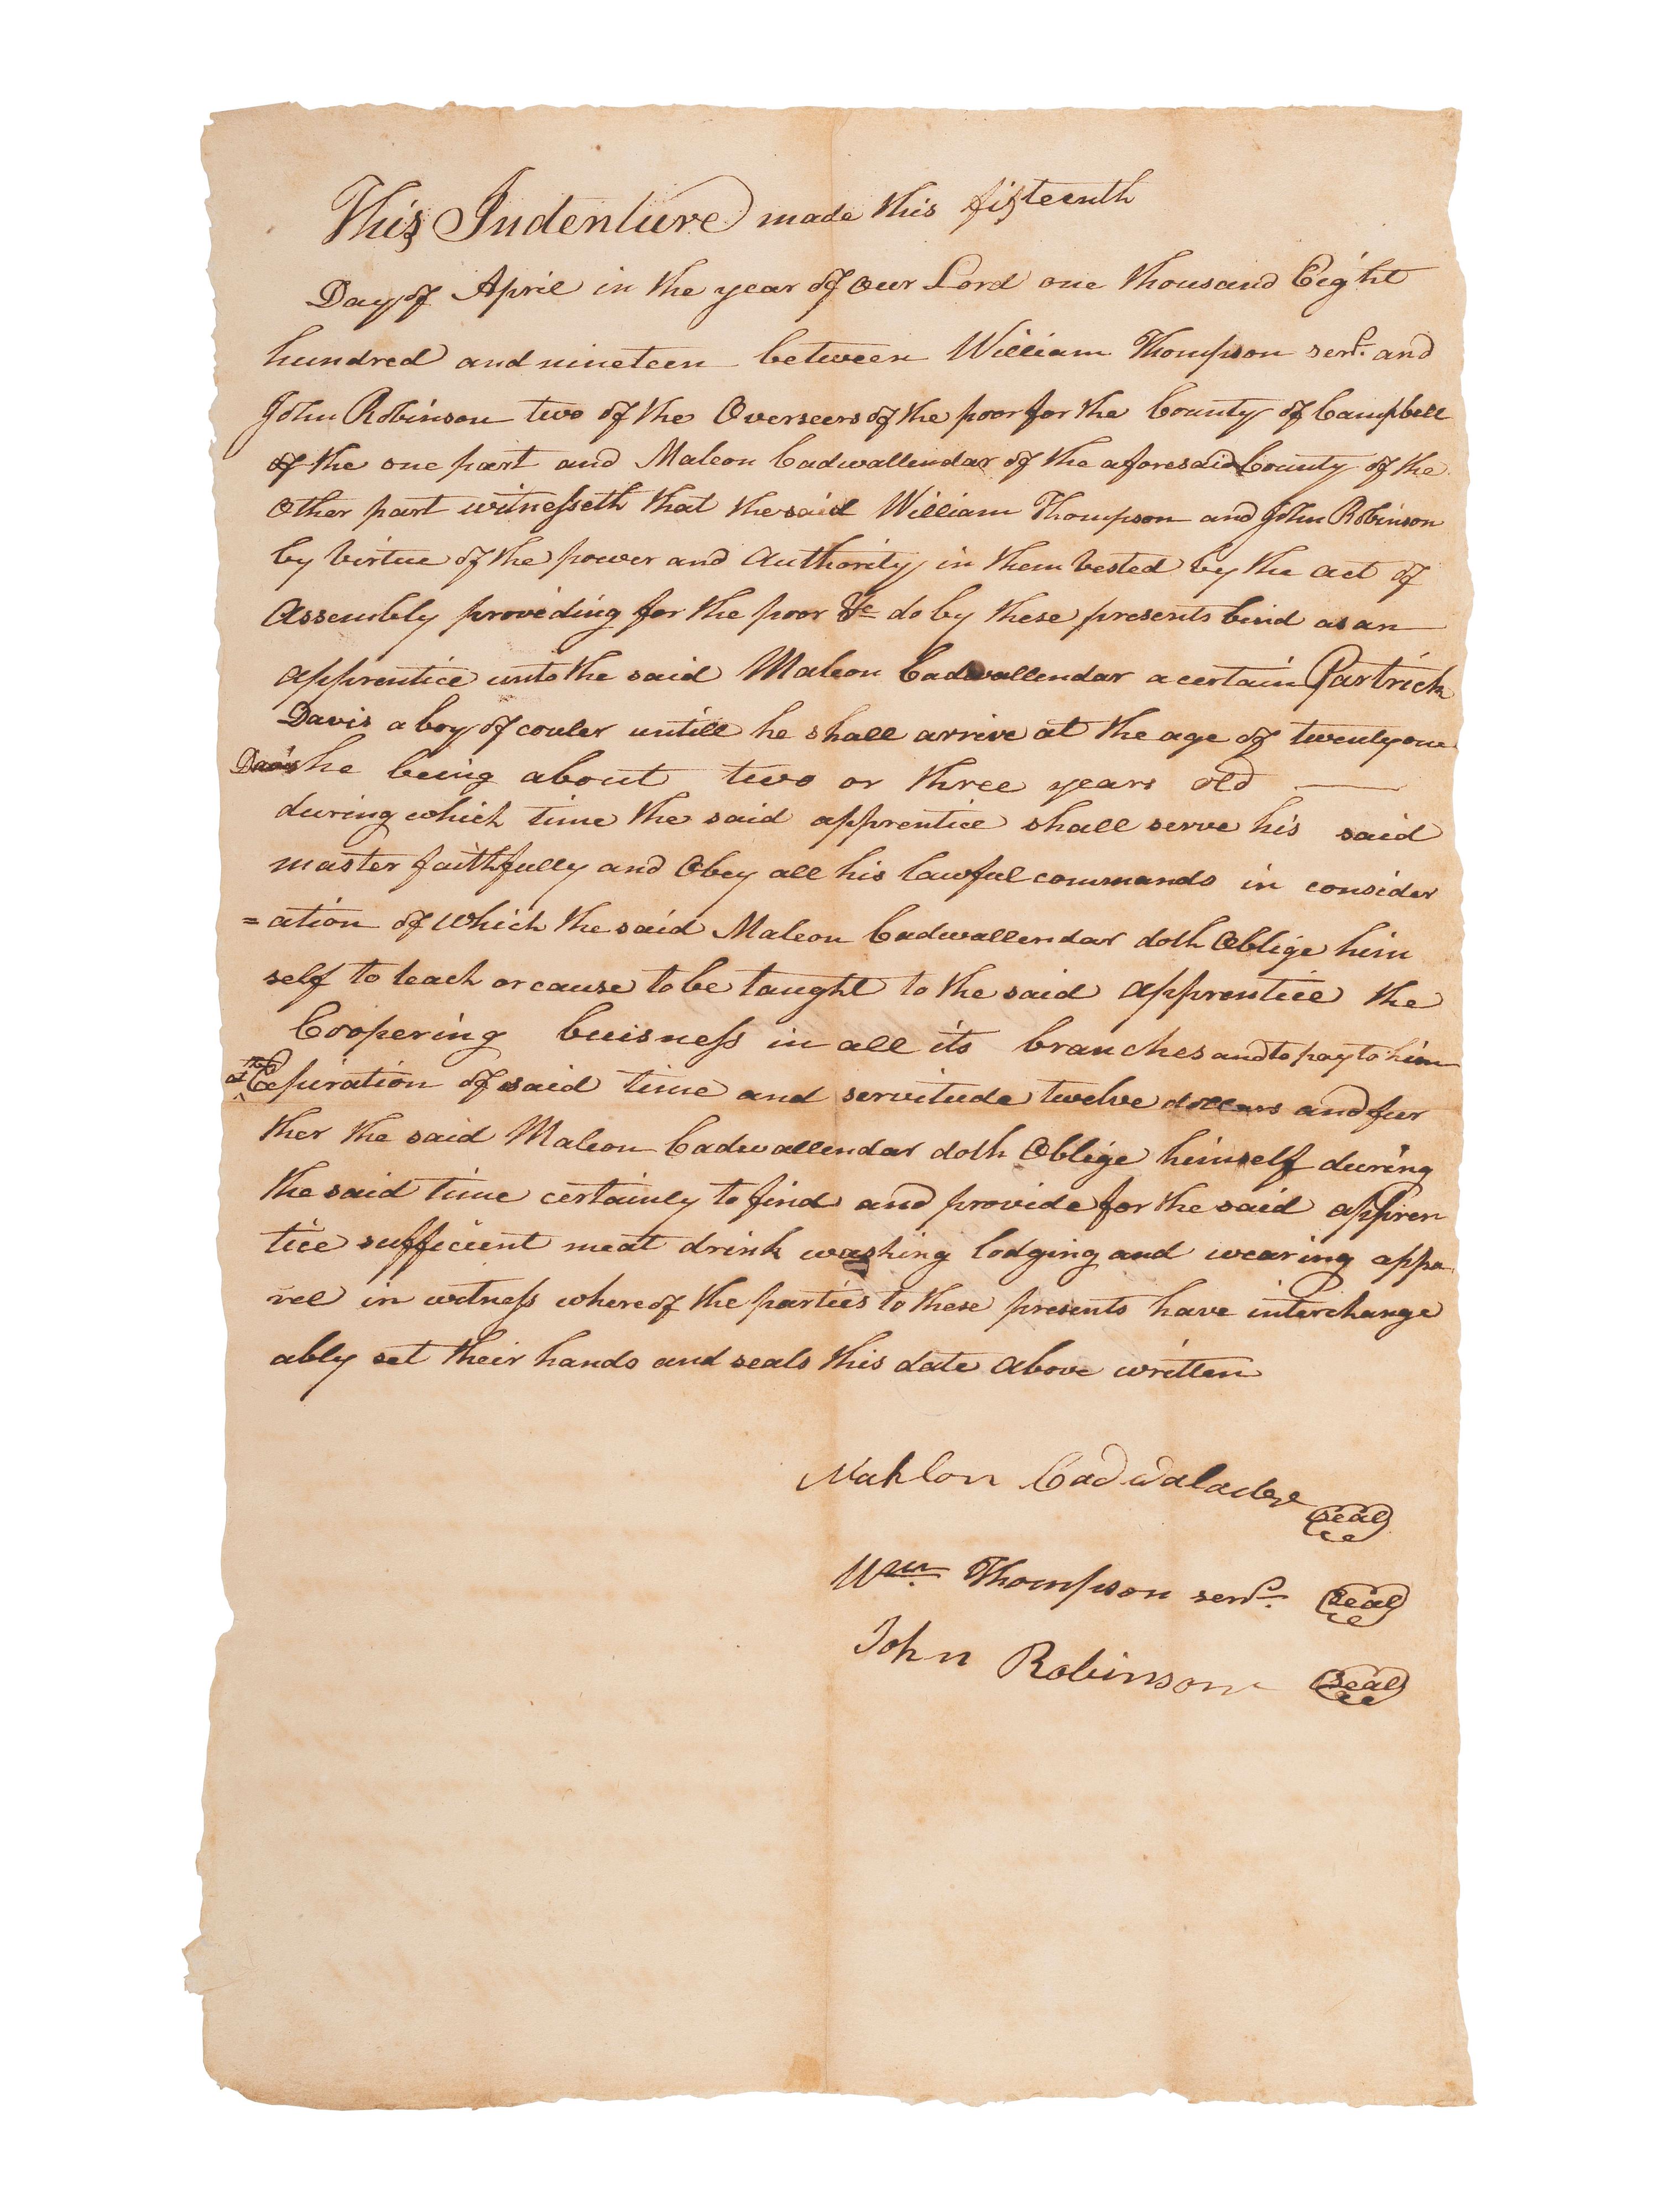 This Indenture made this fifteenth
Day of April in the year of Our Lord one thousand Eight
hundred and nineteen between William Thompson senr. and
John Robinson two of the Overseers of the poor for the County of Campbell
of the one part and Maleon Cadwallendar of the aforesaid County of the
Other part witnesseth that the said William Thompson and John Robinson
by Virtue of the power and Authority in them Vested by the act of
Assembly proveding for the poor &c do by these presents bind as an
apprentice unto the said Maleon Cadwallendar a certain Partrick
Davis a boy of couler untill he shall arrive at the age of twenty one
Davis he being about two or three years old
during which time the said apprentice shall serve his said
master faithfully and Obey all his lawful commands in consider
=ation of which the said Maleon Cadwallendar doth Oblige him
self to teach or cause to be taught to the said apprentice the
Coopering buisness in all its branches and to pay to him
at the Expiration of said time and servitude twelve dollars and fur
ther the said Maleon Cadwallendar doth Oblige himself during
the said time certainly to find and provide for the said appren
tice sufficient meat drink washing lodging and wearing appa
rel in witness whereof the parties to these presents have interchange
ably set their hands and seals this date above written
Mahlon Cadwalader Seal
Wm. Thompson senr. Seal
John Robinson Seal